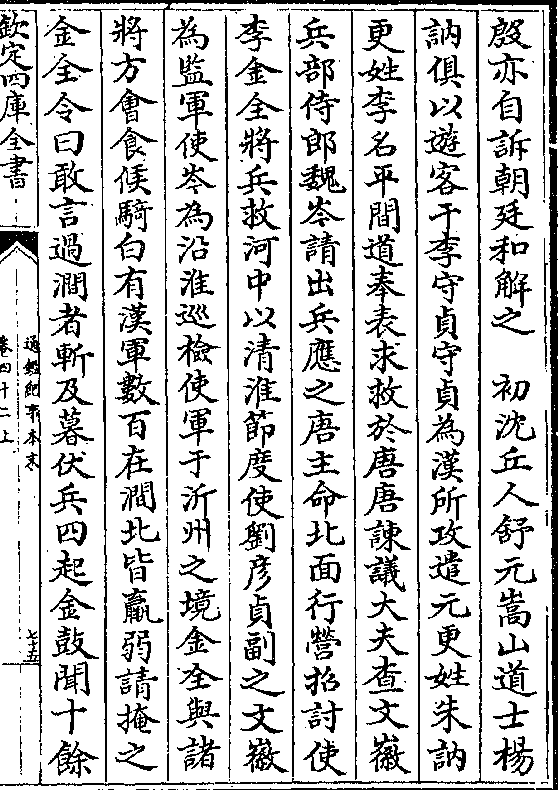 殷亦自訴朝廷和解之　初沈丘人舒元嵩山道士楊
訥俱以遊客干李守貞守貞為漢所攻遣元更姓朱訥
更姓李名平間道奉表求救於唐唐諫議大夫查文徽
兵部侍郎魏岑請出兵應之唐主命北面行營招討使
李金全將兵救河中以清淮節度使劉彦貞副之文徽
為監軍使岑為沿淮巡檢使軍于沂州之境金全與諸
將方會食候騎白有漢軍數百在澗北皆羸弱請掩之
金全令曰敢言過澗者斬及暮伏兵四起金鼓聞十餘
欽定四庫全書
通鑑紀事本末
卷四十二上
七十五